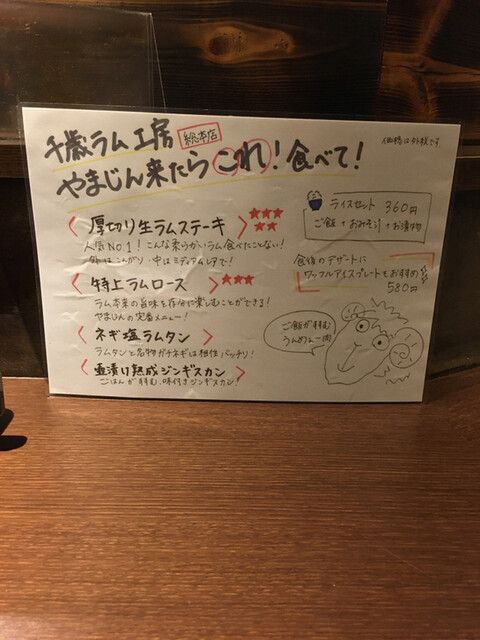 千歳ラム工房 総本店
やまじん来たら これ!食べて!
価格は外税です
厚切り生ラムステーキ
人気No1!こんな柔らかいラム食べたことない!
外はこんがり・中はミディアムレアで!
特上ラムロース
ラム本来の旨味を存分に楽しむことができる!
やまじんの定番メニュー!
ネギ塩ラムタン
ラムタンと名物ガチネギは相性バッチリ!
壷漬け熟成ジンギスカン
ごはんが進む、味付きジンギスカン
ライスセット 360円
ご飯+おみそ汁+お漬物
食後のデザートに
ワッフルアイスプレートもおすすめ
580円
ご飯が進む
うんめぇ〜肉